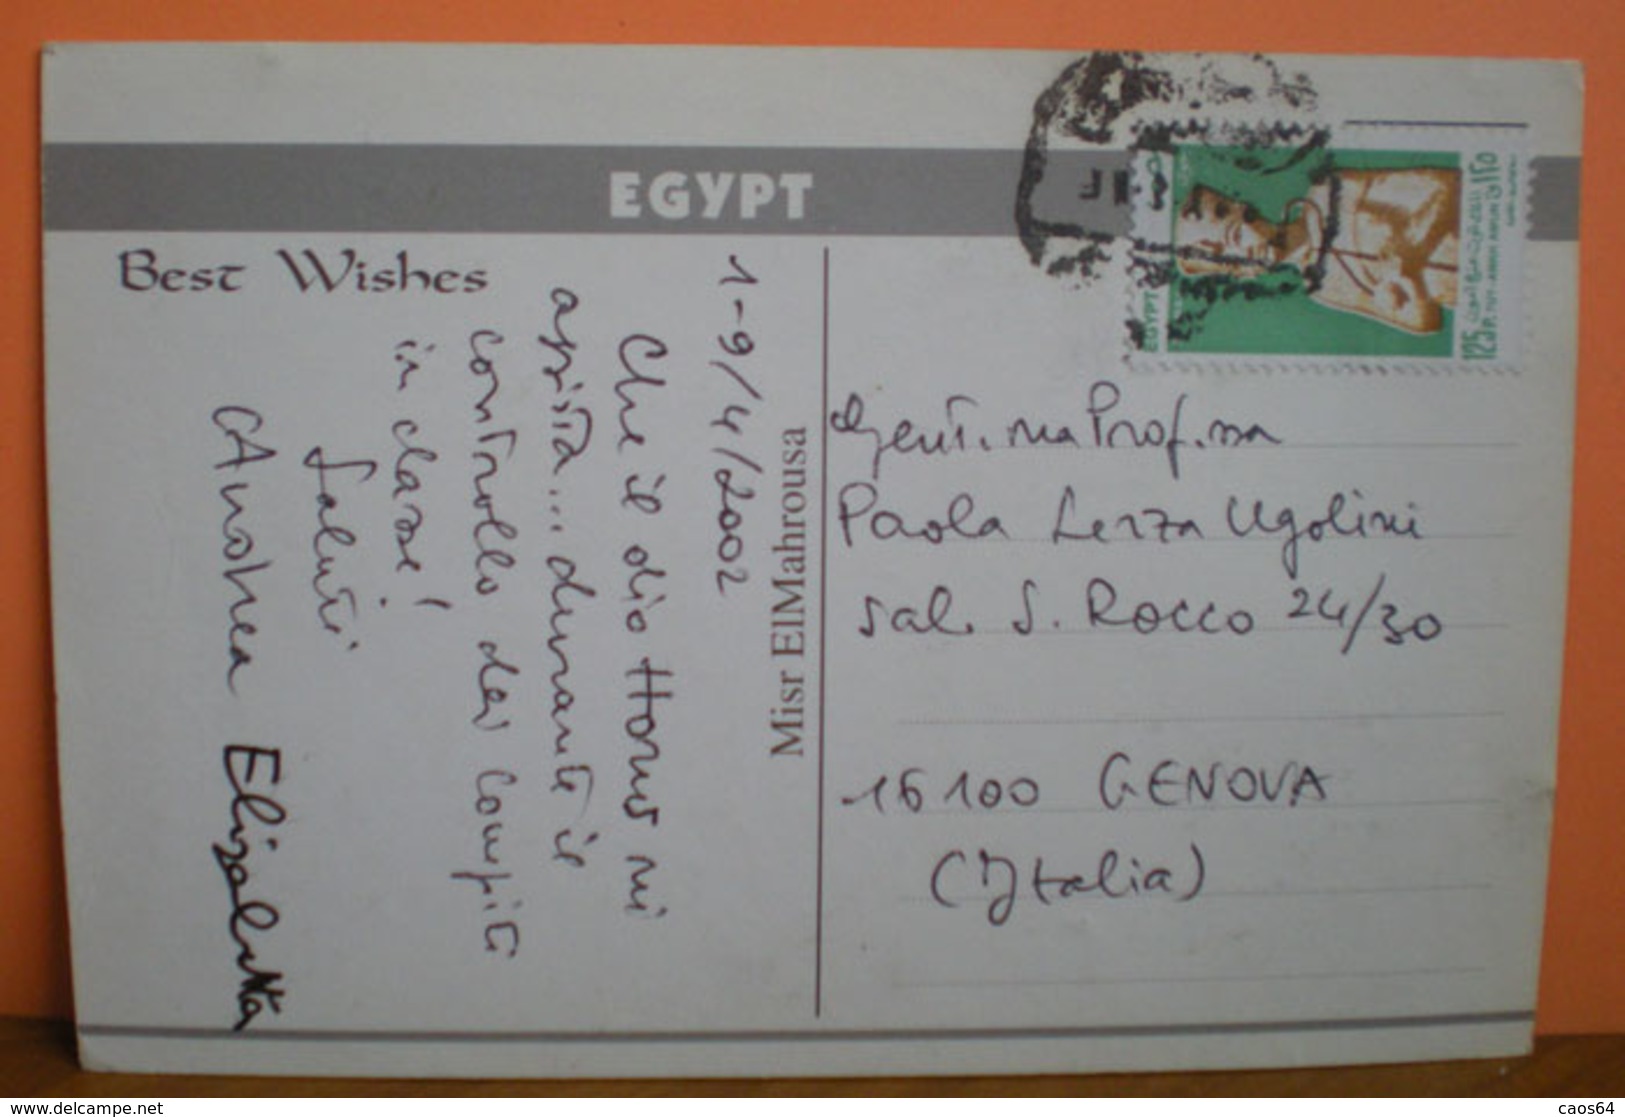 EGYPT
Best Wishes
1-9/4/2002
Che il dio Horus vi
assista... durante il
controllo dei compiti
in classe!
Saluti
Andrea Elisabetta
Misr ElMahrousa
EGYPT
125 P.
Gent.ma Prof.ssa
Paola Lerza Ugolini
Sal. S. Rocco 24/30
16100 GENOVA
(Italia)
https://www.delcampe.net
caos64